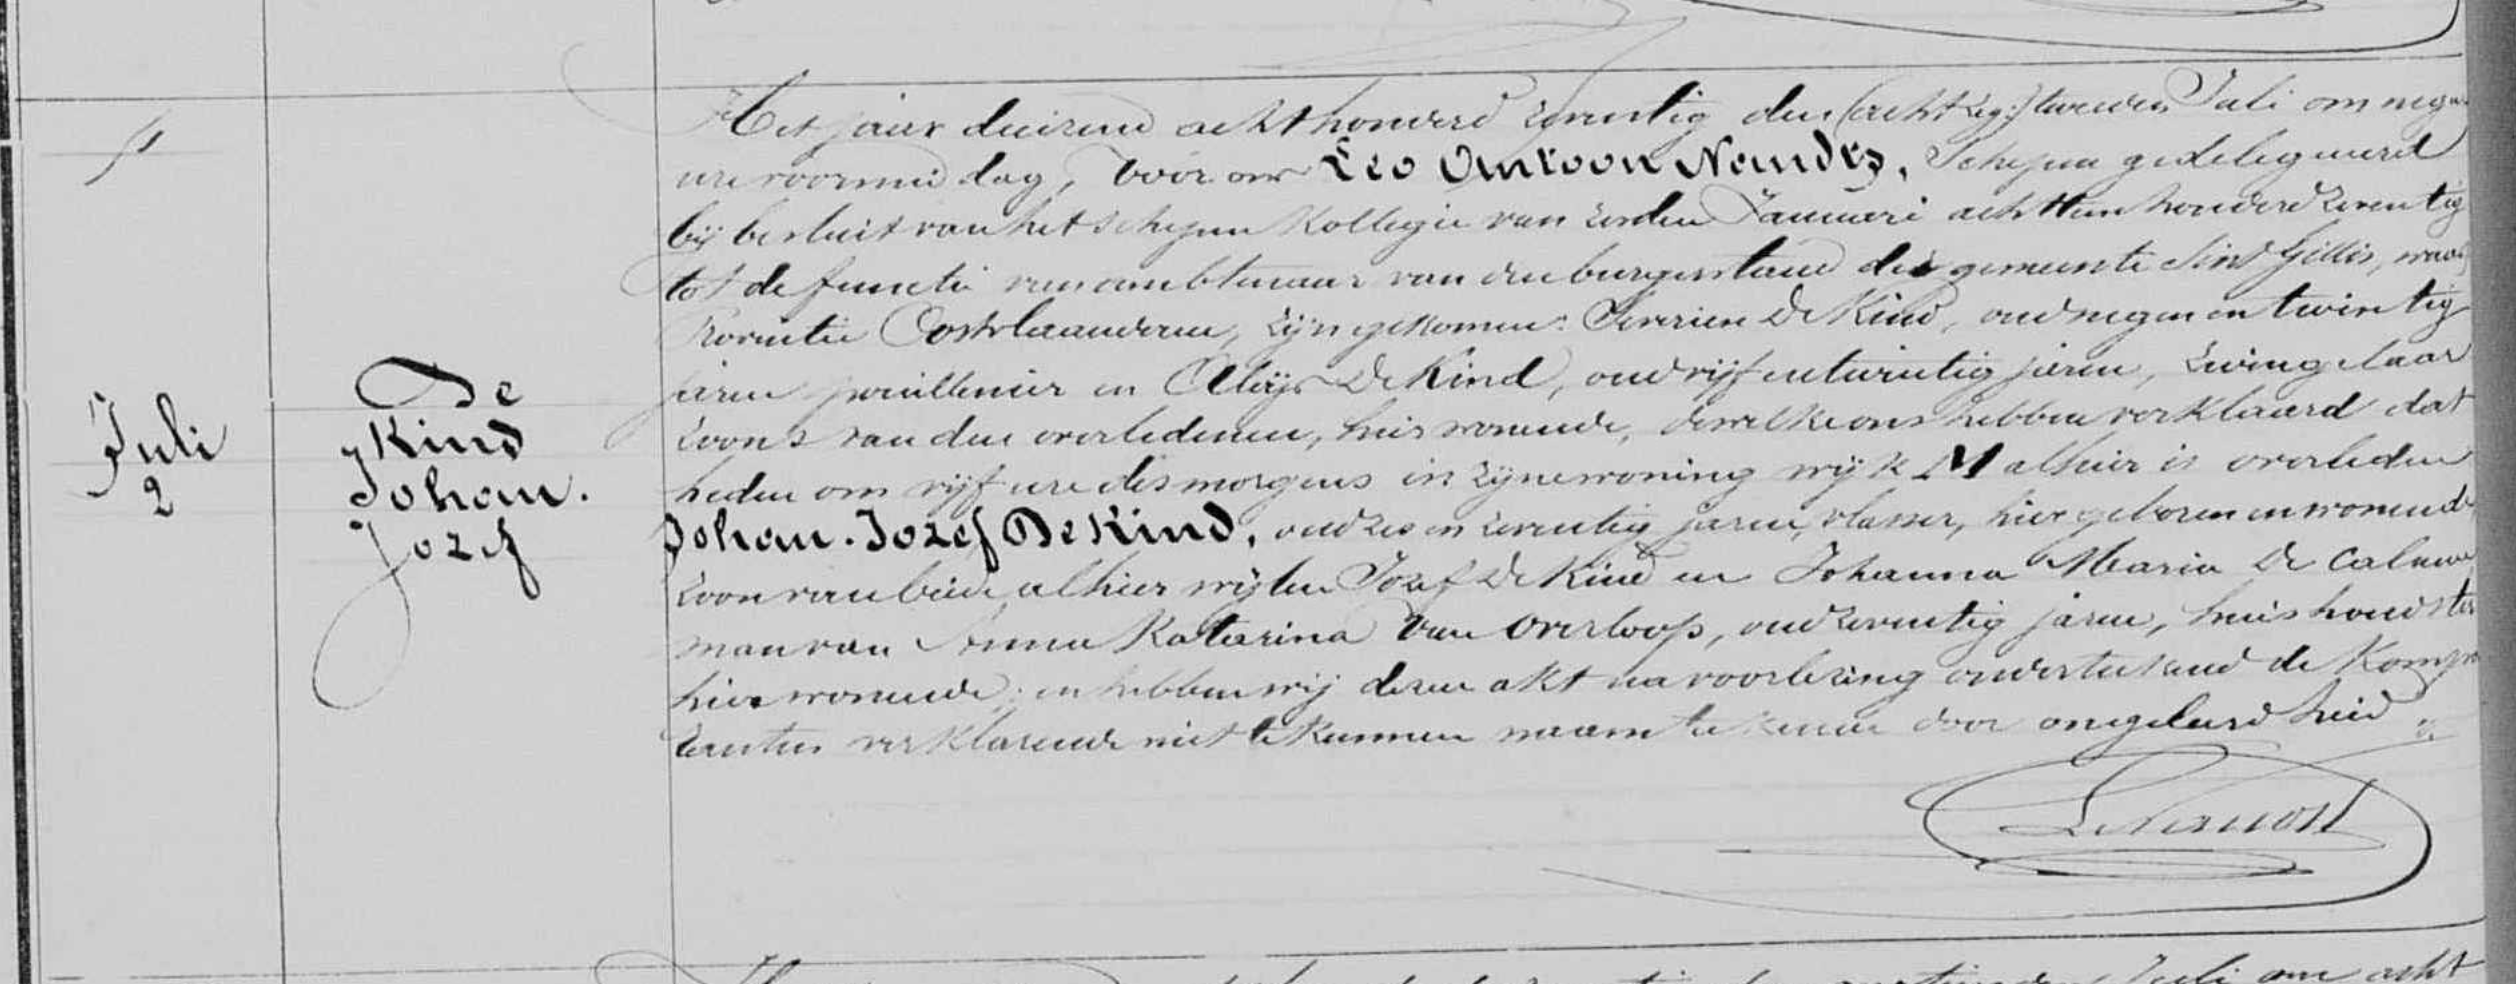 Het jaar duizend achthonderd zeventig den (acht zeg:) tweeden Juli om negen
ure voormiddag, voor ons Leo Antoon, Schepen gedelegueerd
bij besluit van het schepen Kollegie van Januari achttien honderd zeventig
tot de functie van ambtenaar van den burgerstand der gemeente Sint Gillis, waas
Provintie Oostvlaanderen, zijn gekomen: Severien De Kind, oud negen en twintig
jaren en Aloijs De Kind, oud vijf en twintig jaren, zwingelaar
zoons van den overledenen, hier wonende, dewelke ons hebben verklaard dat
heden om vijf ure des morgens in zijne woning wijk M alhier is overleden
Juli
2
De
Kind
Johan.
Jozef
Johan. Jozef De Kind, oud zes en zeventig jaren, vlasser, hier geboren en wonende
zoon van beide alhier wijlen Jozef De Kind en Johanna Maria De Caluwe
man van Anna Katarina Van Overloop, oud zeventig jaren, huishoudster
hier wonende; en hebben wij dezen akt na voorlezing onderteekend de Kompa
verklarende niet te kunnen naamteekenen door ongeleerdheid
Het Juli om acht